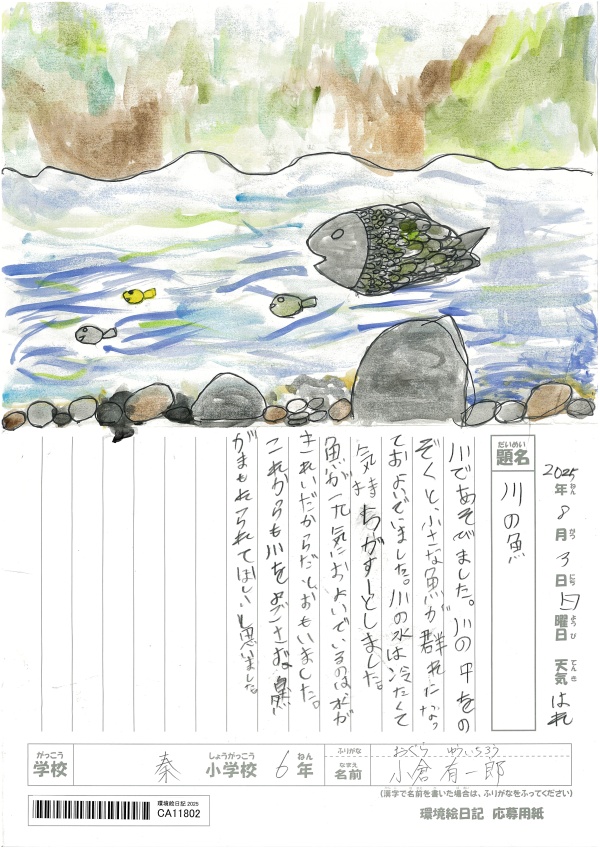 2025年ねん8月がつ3日にち日曜日ようび 天気てんき はれ
だいめい
題名
川の魚
川であそびました。川の中をの
ぞくと、小さな魚が群れになっ
ておよいでいました。川の水は冷たくて
気持ちがすーとしました。
魚が元気におよいでいるのは水が
きれいだからだとおもいました。
これからも川をよごさず、魚
がまもれられてほしいと思いました。
がっこう 学校 秦 しょうがっこう 小学校 6 ねん 年
ふりがな おぐら ゆういちろう
なまえ 名前 小倉 有一郎
(漢字で名前を書いた場合は、ふりがなをふってください)
環境絵日記 2025
CA11802
環境絵日記 応募用紙